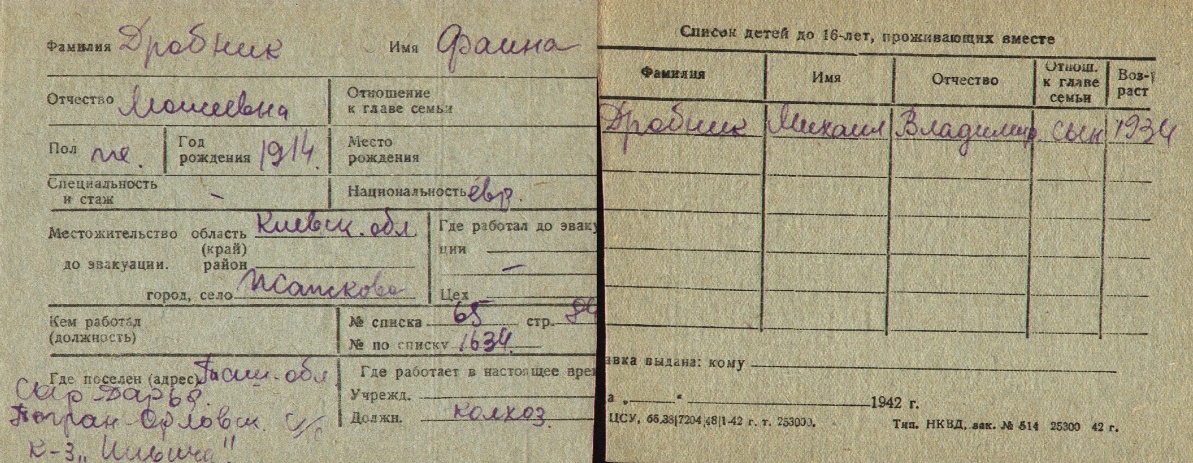 Фамилия Дробник Имя Фаина
Отчество Мошевна Отношение к главе семьи
Пол же. Год рождения 1914. Место рождения
Специальность и стаж – Национальность евр.
Местожительство область Киевск. обл Где работал до эваку
(край) ции
до эвакуации. район –
город, село Цех
Кем работал (должность) № списка 65 стр.
№ по списку 1634.
Где поселен (адрес) Таш. обл. Где работает в настоящее врем
Сыр Дарья. Учрежд.
Погран-Орловск. с/с Должн. колхоз.
К-з „Ильича"
Список детей до 16-лет, проживающих вместе
Фамилия Имя Отчество Отнош. к главе семьи Воз-раст
Дробник Михаил Владимир. сын 1934
авка выдана: кому
а „ " 1942 г.
ЦСУ, 66,38|7204|48|1-42 г. т. 253000. Тип. НКВД, зак. № 514 25300 42 г.